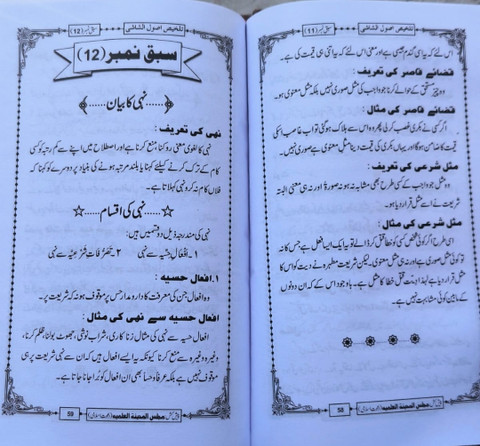 تلخیص اصول الشاشی
سبق نمبر (11)
اس لئے کہ یہ اسی گندم جیسی ہے اور معنی اس لئے کہ یہ اتنی ہی قیمت کی ہے۔
قضائے قاصر کی تعریف:
وہ چیز مستحق کے حوالے کرنا جو واجب کی مثل صوری نہیں بلکہ مثل معنوی ہو۔
قضائے قاصر کی مثال:
اگر کسی نے بکری غصب کر لی پھر وہ اس سے ہلاک ہو گئی تو اب غاصب اسکی
قیمت کا ضامن ہوگا اور یہاں بکری کی قیمت دینا مثل معنوی ہے صوری نہیں۔
مثل شرعی کی تعریف:
وہ مثل جو واجب کے کسی طرح بھی مشابہ نہ ہو نہ صورۃً اور نہ ہی معنیً البتہ
شریعت نے اسے مثل قرار دیا ہو۔
مثل شرعی کی مثال:
اسی طرح اگر کوئی شخص کسی کو خطاً قتل کر ڈالے تو یہ ایک ایسا فعل ہے جس کا نہ
تو کوئی مثل صوری ہے اور نہ ہی مثل معنوی۔ لیکن شریعت مطہرہ نے دیت کو اس کا
مثل قرار دیا ہے لہٰذا دیت قتل خطا کا مثل ہے۔ باوجود اس کے کہ ان دونوں
کے مابین کوئی مشابہت نہیں ہے۔
مجلس المدینۃ العلمیۃ (دعوت اسلامی)
58
تلخیص اصول الشاشی
سبق نمبر (12)
سبق نمبر (12)
......نہی کا بیان......
نہی کی تعریف:
نہی کا لغوی معنی روکنا، منع کرنا ہے اور اصطلاح میں اپنے سے کم رتبہ کو کسی
کام کے ترک کرنے کیلئے کہنا یا بلند مرتبہ ہونے کی بنیاد پر دوسرے کو کہنا کہ
فلاں کام نہ کرو نہی کہلاتا ہے۔
☆......نہی کی اقسام......☆
نہی کی مندرجہ ذیل دو قسمیں ہیں:
۱۔ افعال حسیہ سے نہی ۲۔ تصرفات شرعیہ سے نہی
۱. افعال حسیہ:
وہ افعال جن کی معرفت کا دارومدار حس پر موقوف ہو نہ کہ شریعت پر۔
افعال حسیہ سے نہی کی مثال:
افعال حسیہ سے نہی کی مثال زنا کاری، شراب نوشی، جھوٹ بولنا، ظلم کرنا،
وغیرہ وغیرہ سے منع کرنا کیونکہ یہ ایسے افعال ہیں کہ ان سے نہی شریعت پر ہی
موقوف نہیں ہے بلکہ عرفاً و حساً بھی ان افعال کو برا جانا جاتا ہے۔
مجلس المدینۃ العلمیۃ (دعوت اسلامی)
59